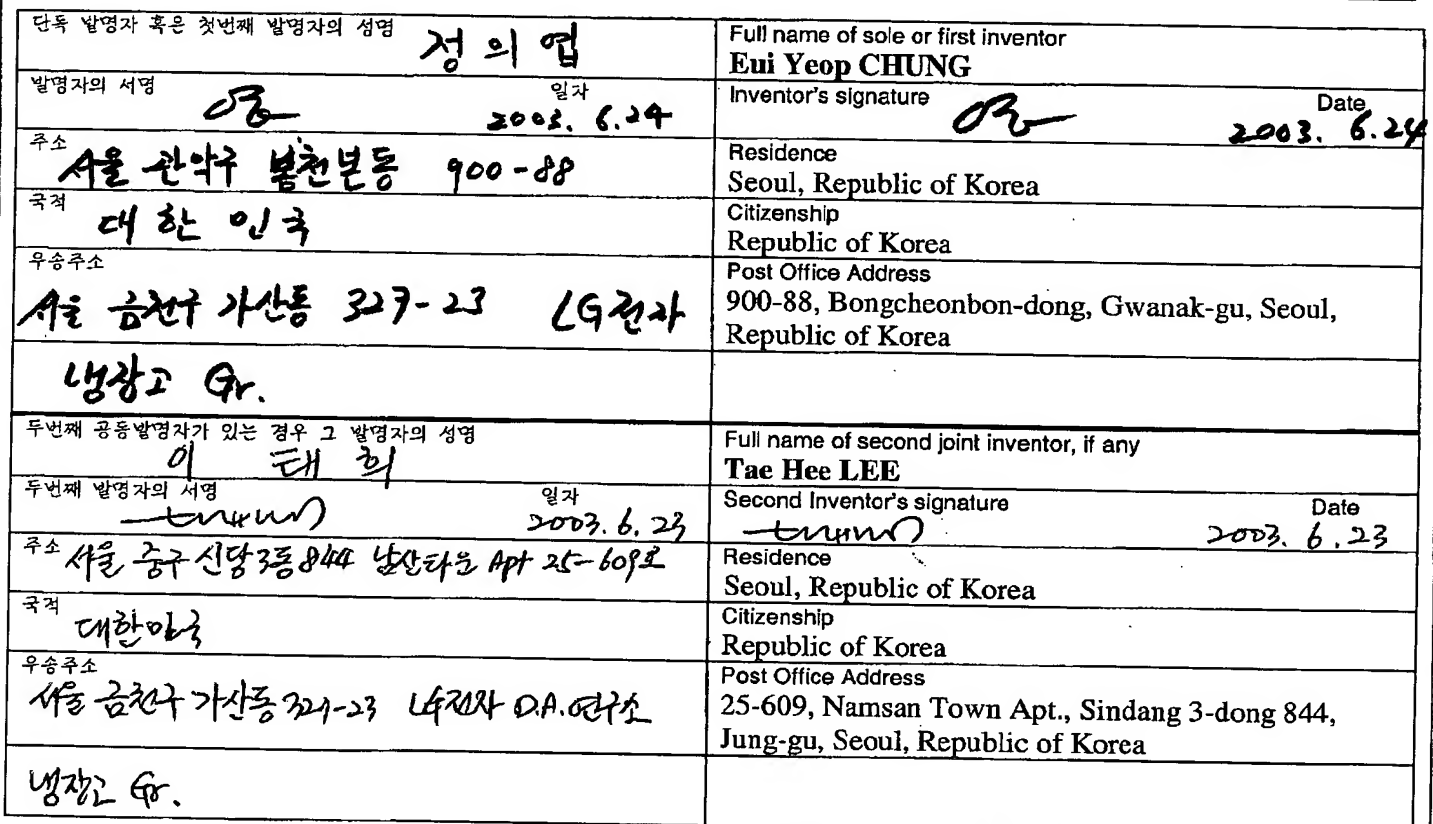 단독 발명자 혹은 첫번째 발명자의 성명 정의엽
Full name of sole or first inventor
Eui Yeop CHUNG
발명자의 서명 일자
2003. 6.24
Inventor's signature Date
2003. 6.24
주소
서울 관악구 봉천본동 900-88
Residence
Seoul, Republic of Korea
국적
대한민국
Citizenship
Republic of Korea
우송주소
서울 금천구 가산동 327-23 LG전자
냉장고 Gr.
Post Office Address
900-88, Bongcheonbon-dong, Gwanak-gu, Seoul,
Republic of Korea
두번째 공동발명자가 있는 경우 그 발명자의 성명
이태희
Full name of second joint inventor, if any
Tae Hee LEE
두번째 발명자의 서명 일자
2003. 6. 23
Second Inventor's signature Date
2003. 6. 23
주소 서울 중구 신당3동 844 남산타운 Apt 25-609호
Residence
Seoul, Republic of Korea
국적
대한민국
Citizenship
Republic of Korea
우송주소
서울 금천구 가산동 327-23 LG전자 D.A.연구소
냉장고 Gr.
Post Office Address
25-609, Namsan Town Apt., Sindang 3-dong 844,
Jung-gu, Seoul, Republic of Korea